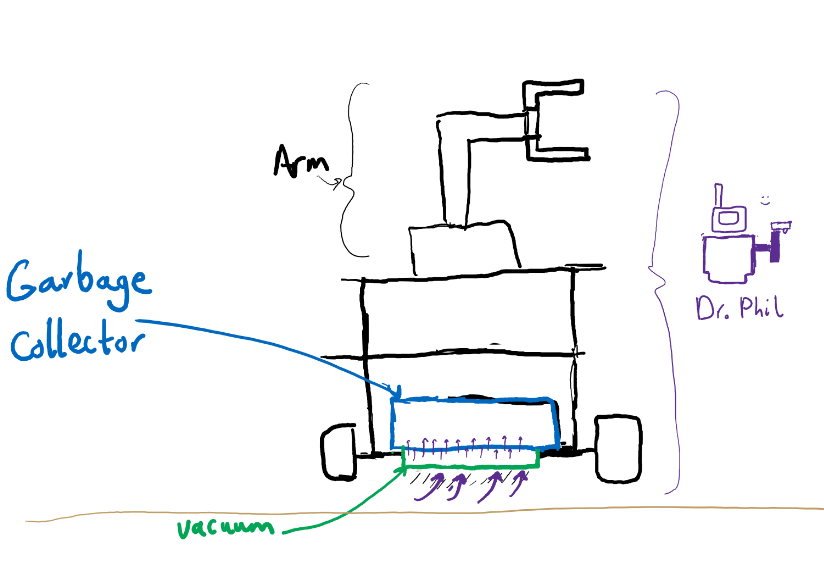 Arm
Garbage
Collector
Dr. Phil
vacuum